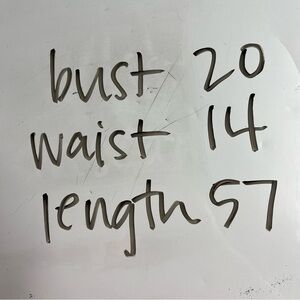 bust 20
waist 14
length 57